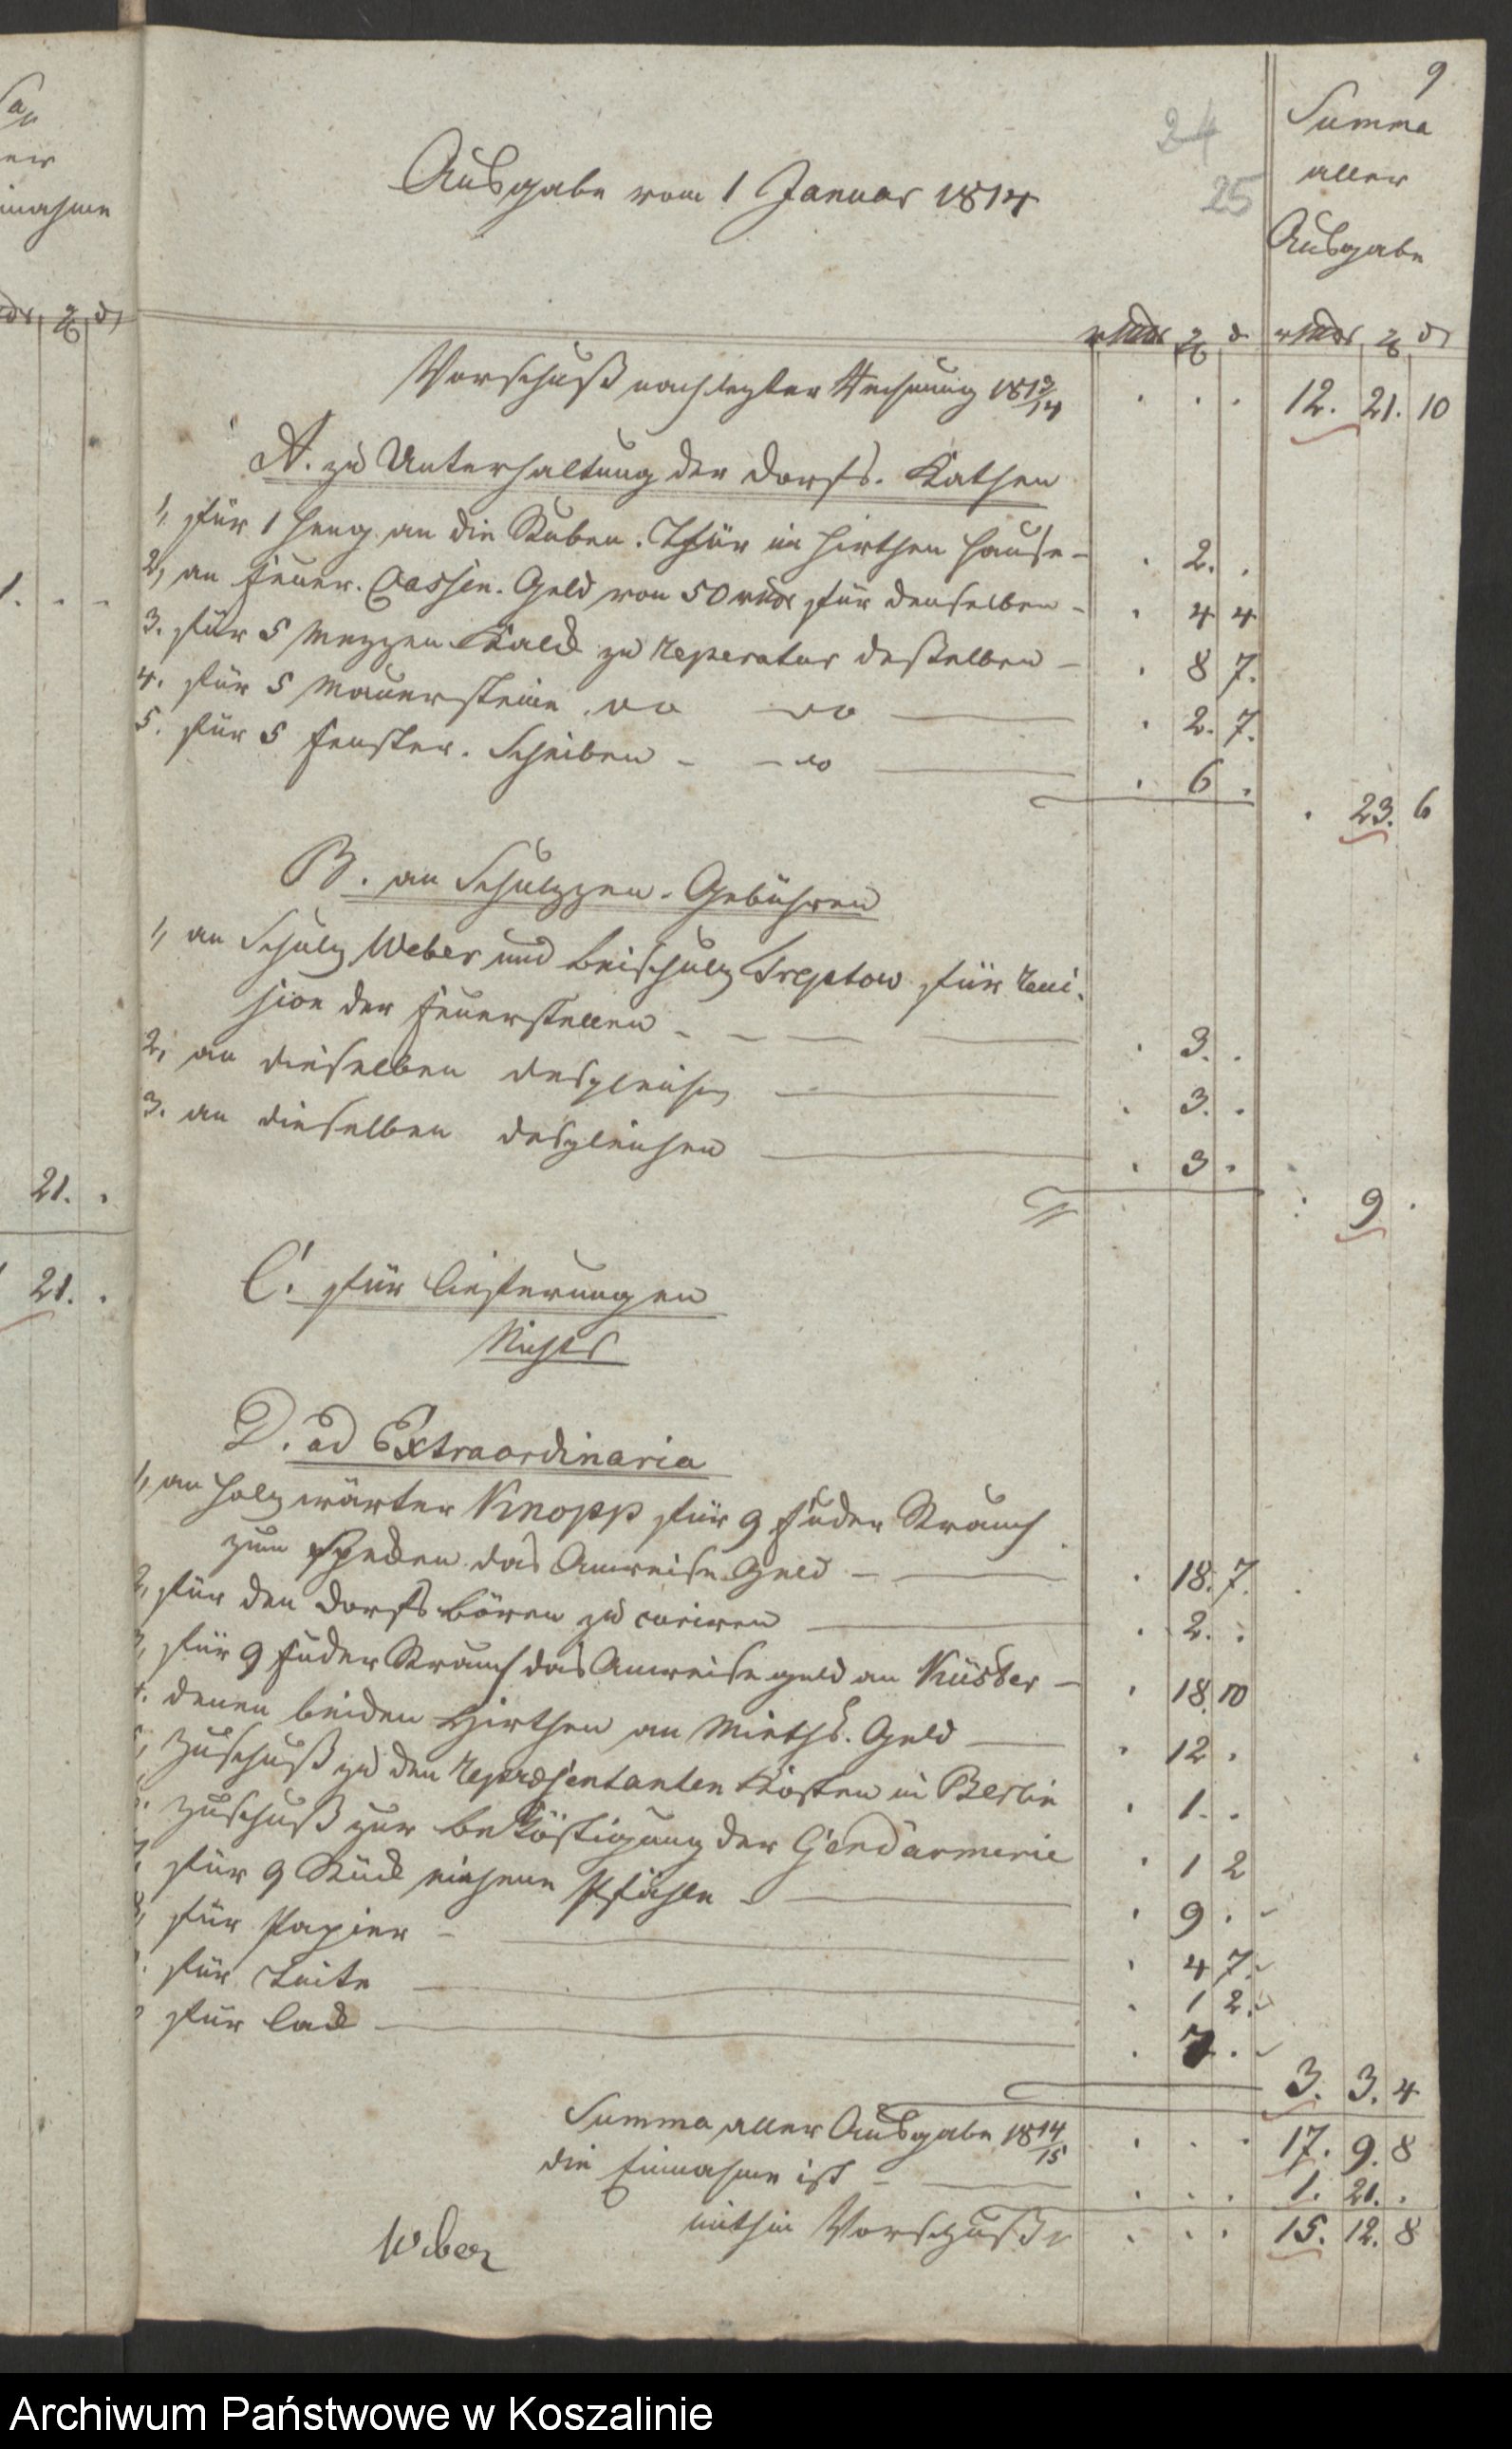 9
24
25
Summa
aller
Ausgabe
Ausgabe vom 1 Januar 1814
rthlr g d rthlr g d
Vorschuß nach lezter Rechnung 1813/14 . . . 12. 21. 10
A. zu Unterhaltung der Dorfs. Kathen
1, für 1 Heng an die Stuben. Thür im Hirthen Hause - . 2. .
2, an Feuer. Cassen. Geld von 50 rthlr für denselben - . 4 4
3. für 5 Mezzen Kalck zu Reperatur deßelben - . 8 7.
4. für 5 Mauersteine do do . 2. 7.
5. für 5 Fenster. Scheiben - - do . 6 .
. 23. 6
B. an Schulzzen. Gebühren
1, an Schulz Weber und Beischulz Treptow für Revi.
sion der Feuerstellen - - . 3. .
2, an dieselben desgleichen . 3. .
3. an dieselben desgleichen . 3 .
. 9 .
C. für Lieferungen
Nichts
D. ad Extraordinaria
1, an Holzwärter Knopp für 9 Fuder Strauch
zum das Anweise Geld - . 18. 7.
2, für den Dorfs Bören zu curiren . 2. .
3, für 9 Fuder Strauch das Anweise geld an Küster - . 18. 10
4. denen beiden Hirthen an Mieths. Geld . 12 .
5, Zuschuß zu den Repræsentanten Kosten in Berlin . 1. .
6. Zuschuß zur Beköstigung der Gendarmerie . 1 2
7, für 9 Stück eichene Pfähle - . 9 .
8, für Papier - . 4 7.
für Dinte . 1 2.
für Lack . 7 .
3. 3. 4
Summa aller Ausgabe 1814/15 . . . 17. 9. 8
die Einnahme ist - . . . 1. 21. .
mithin Vorschuß . . . 15. 12. 8
Weber
21. .
21. .
Archiwum Państwowe w Koszalinie